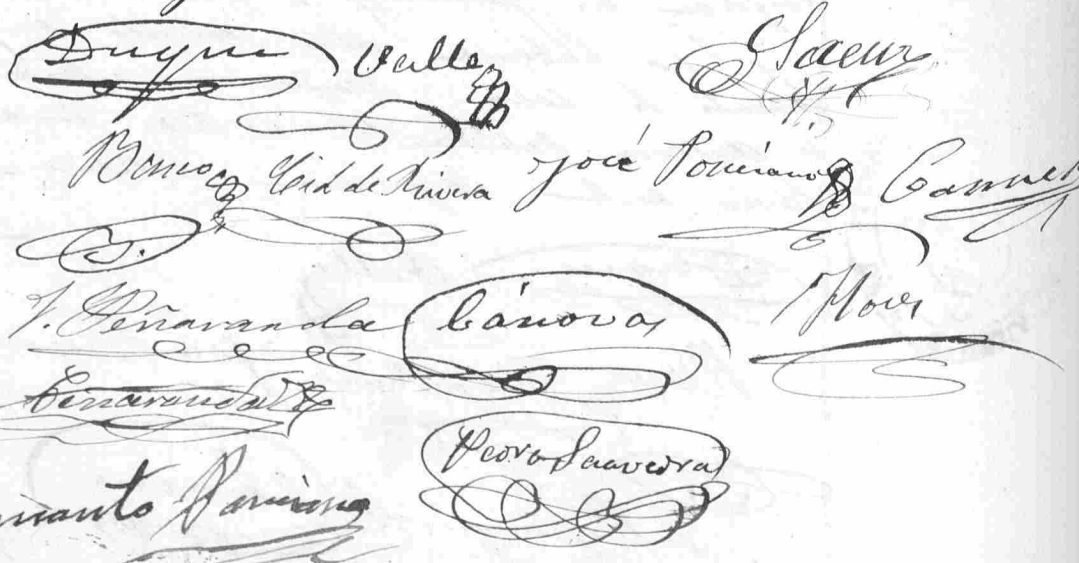 Duque Valle Saenz
Cid de Rivera José Ponciano
J. Peñaranda Cánovas Flores
Peñaranda
Pedro Saavedra